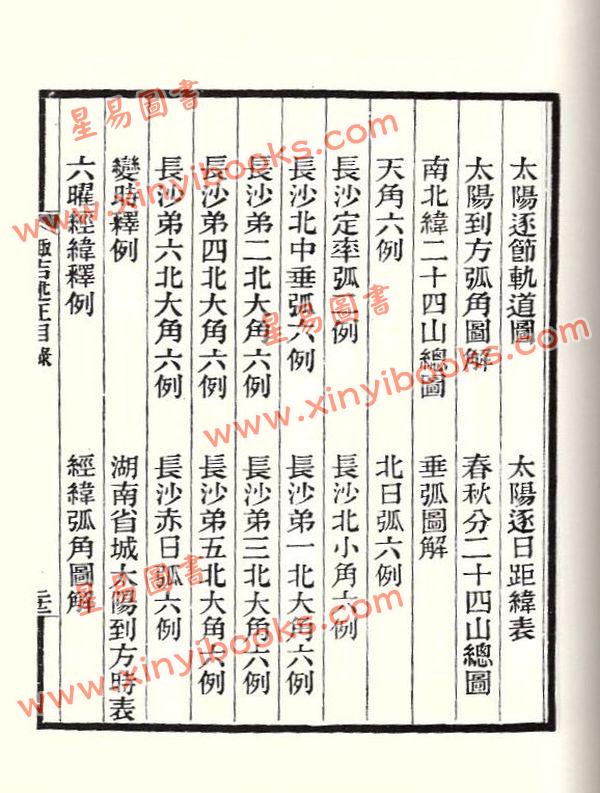 太陽逐節軌道圖　太陽逐日距緯表
太陽到方弧角圖解　春秋分二十四山總圖
南北緯二十四山總圖　垂弧圖解
天角六例　北日弧六例
長沙定率弧一例　長沙北小角六例
長沙北中垂弧六例　長沙弟一北大角六例
長沙弟二北大角六例　長沙弟三北大角六例
長沙弟四北大角六例　長沙弟五北大角六例
長沙弟六北大角六例　長沙赤日弧六例
變時釋例　湖南省城太陽到方時表
六曜經緯釋例　經緯弧角圖解
吉述正目錄
星易圖書
www.xinyibooks.com
星易圖書
www.xinyibooks.com
星易圖書
www.xinyibooks.com